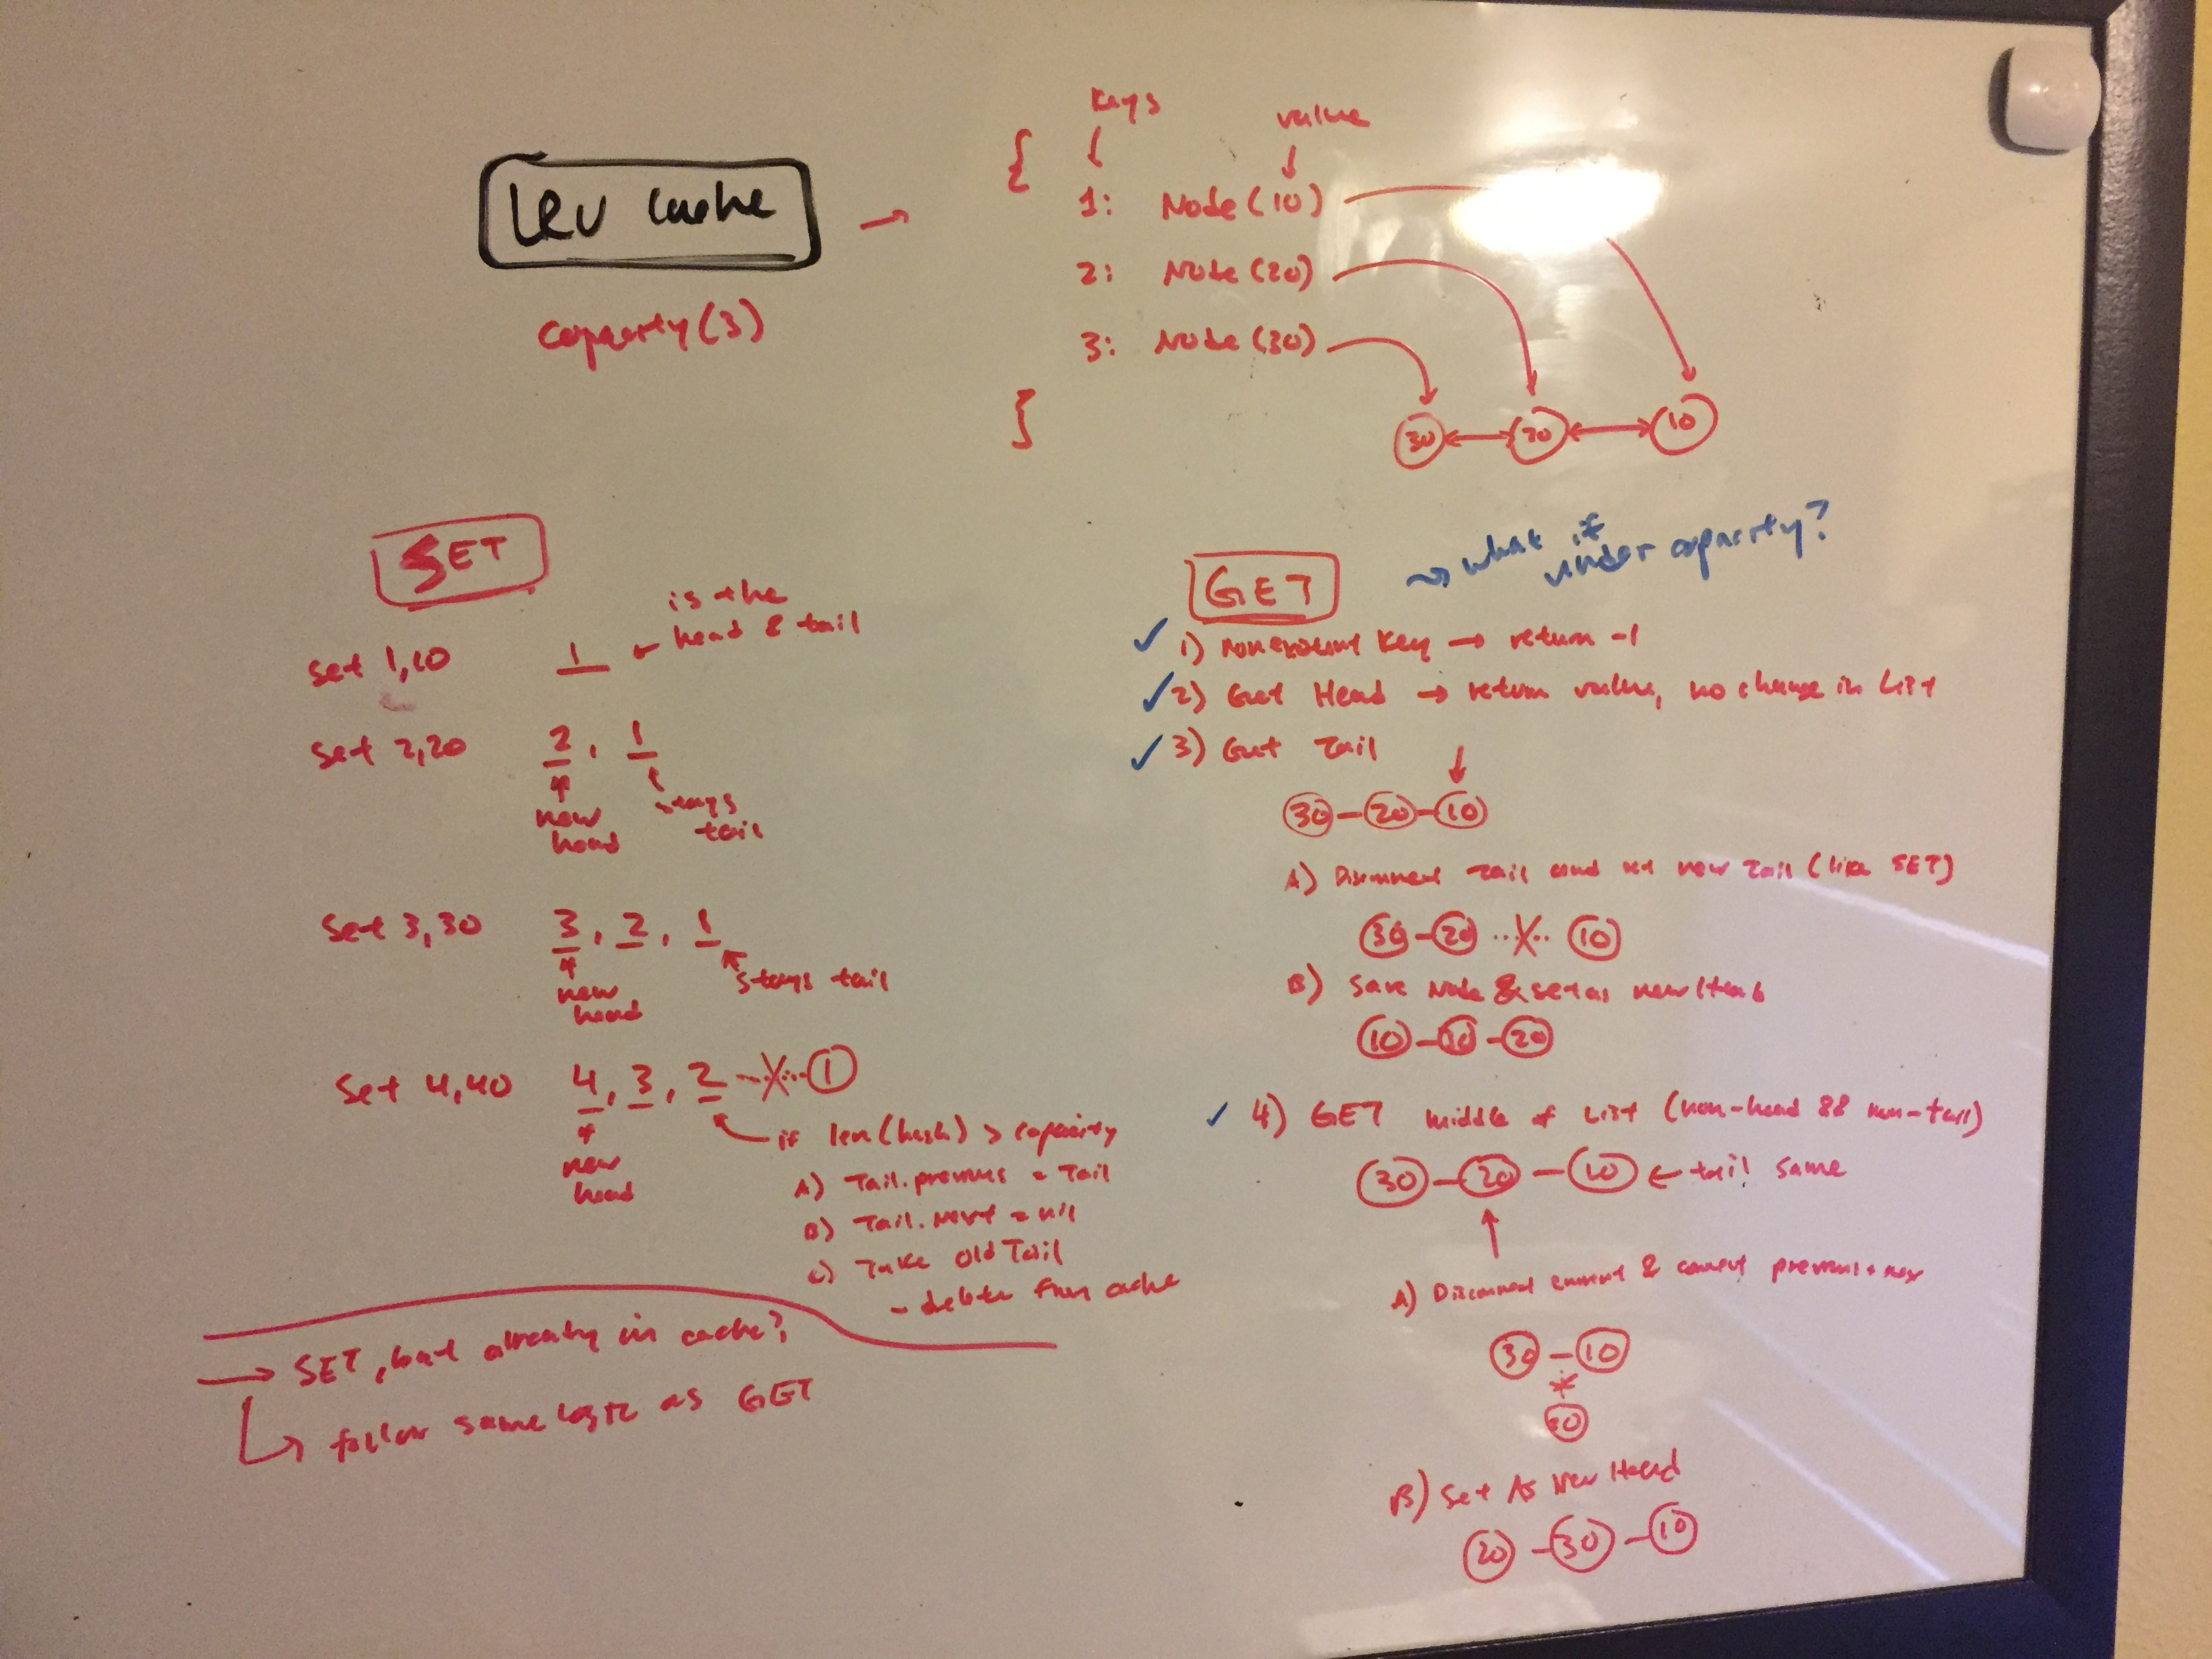 LRU Cache
capacity(3)
keys
value
{
1: Node(10)
2: Node(20)
3: Node(30)
}
30 20 10
SET
set 1,10 1 is the head & tail
set 2,20 2, 1
new head
stays tail
set 3,30 3, 2, 1
new head
stays tail
set 4,40 4, 3, 2 X 1
new head
if len(hash) > capacity
A) Tail.previous = Tail
B) Tail.next = nil
C) Take old Tail
- delete from cache
→ SET, but already in cache?
follow same logic as GET
GET
what if under capacity?
✓ 1) nonexistent key → return -1
✓ 2) Get Head → return value, no change in List
✓ 3) Get Tail
30 - 20 - 10
A) Disconnect tail and set new Tail (like SET)
30 - 20 ..X.. 10
B) Save Node & set as new Head
10 - 30 - 20
✓ 4) GET middle of List (non-head && non-tail)
30 - 20 - 10 ← tail same
A) Disconnect current & connect previous + next
30 - 10
B) Set As New Head
20 - 30 - 10